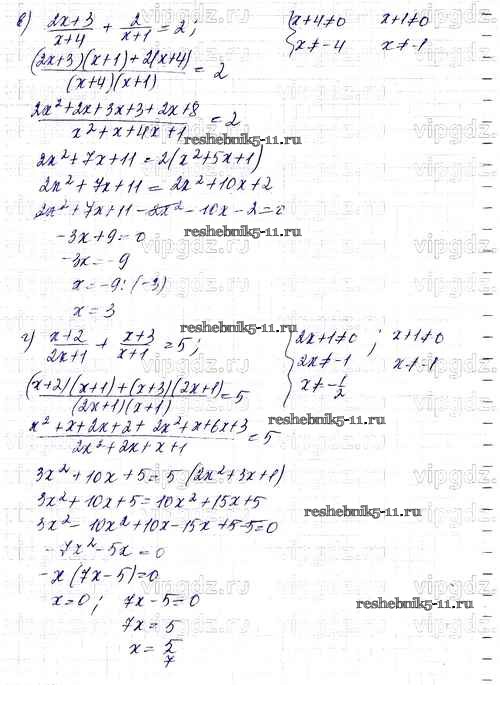 в) (2x+3)/(x+4) + 2/(x+1) = 2; { x+4≠0 x+1≠0
x≠-4 x≠-1
((2x+3)(x+1)+2(x+4))/((x+4)(x+1)) = 2
(2x²+2x+3x+3+2x+8)/(x²+x+4x+1) = 2
reshebnik5-11.ru
2x²+7x+11=2(x²+5x+1)
2x²+7x+11=2x²+10x+2
2x²+7x+11-2x²-10x-2=0
-3x+9=0 reshebnik5-11.ru
-3x=-9
x=-9:(-3)
x=3
reshebnik5-11.ru
г) (x+2)/(2x+1) + (x+3)/(x+1) = 5; { 2x+1≠0 ; x+1≠0
2x≠-1 x≠-1
x≠-1/2
((x+2)(x+1)+(x+3)(2x+1))/((2x+1)(x+1)) = 5
reshebnik5-11.ru
(x²+x+2x+2+2x²+x+6x+3)/(2x²+2x+x+1) = 5
3x²+10x+5=5(2x²+3x+1)
3x²+10x+5=10x²+15x+5
reshebnik5-11.ru
3x²-10x²+10x-15x+5-5=0
-7x²-5x=0
-x(7x-5)=0
x=0; 7x-5=0
reshebnik5-11.ru
7x=5
x=5/7
vipgdz.ru